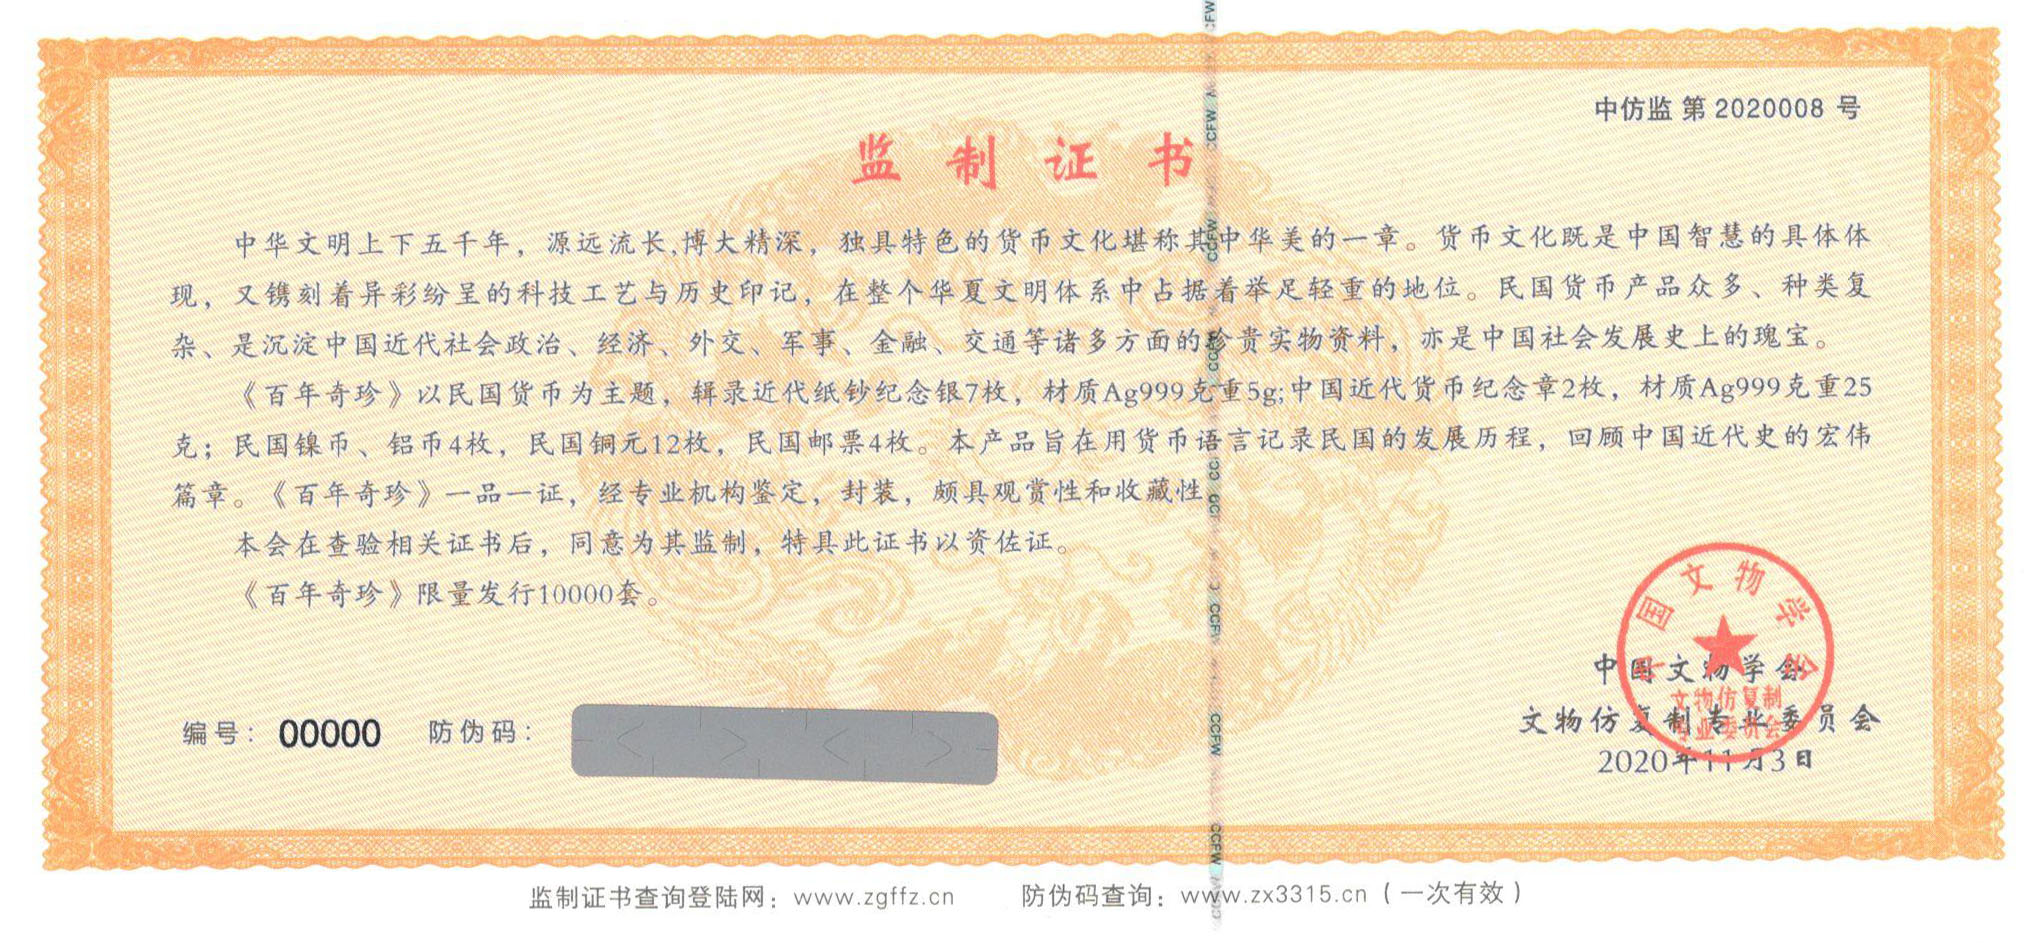 中仿监 第 2020008 号
监制证书
中华文明上下五千年，源远流长,博大精深，独具特色的货币文化堪称其中华美的一章。货币文化既是中国智慧的具体体
现，又镌刻着异彩纷呈的科技工艺与历史印记，在整个华夏文明体系中占据着举足轻重的地位。民国货币产品众多、种类复
杂、是沉淀中国近代社会政治、经济、外交、军事、金融、交通等诸多方面的珍贵实物资料，亦是中国社会发展史上的瑰宝。
《百年奇珍》以民国货币为主题，辑录近代纸钞纪念银7枚，材质Ag999克重5g;中国近代货币纪念章2枚，材质Ag999克重25
克；民国镍币、铝币4枚，民国铜元12枚，民国邮票4枚。本产品旨在用货币语言记录民国的发展历程，回顾中国近代史的宏伟
篇章。《百年奇珍》一品一证，经专业机构鉴定，封装，颇具观赏性和收藏性
本会在查验相关证书后，同意为其监制，特具此证书以资佐证。
《百年奇珍》限量发行10000套。
中国文物学会
文物仿复制
专业委员会
中国文物学会
文物仿复制专业委员会
2020年11月3日
编号：00000 防伪码：
监制证书查询登陆网：www.zgffz.cn 防伪码查询：www.zx3315.cn（一次有效）
CCFW
CCFW
CCFW
CCFW
CCFW
CCFW